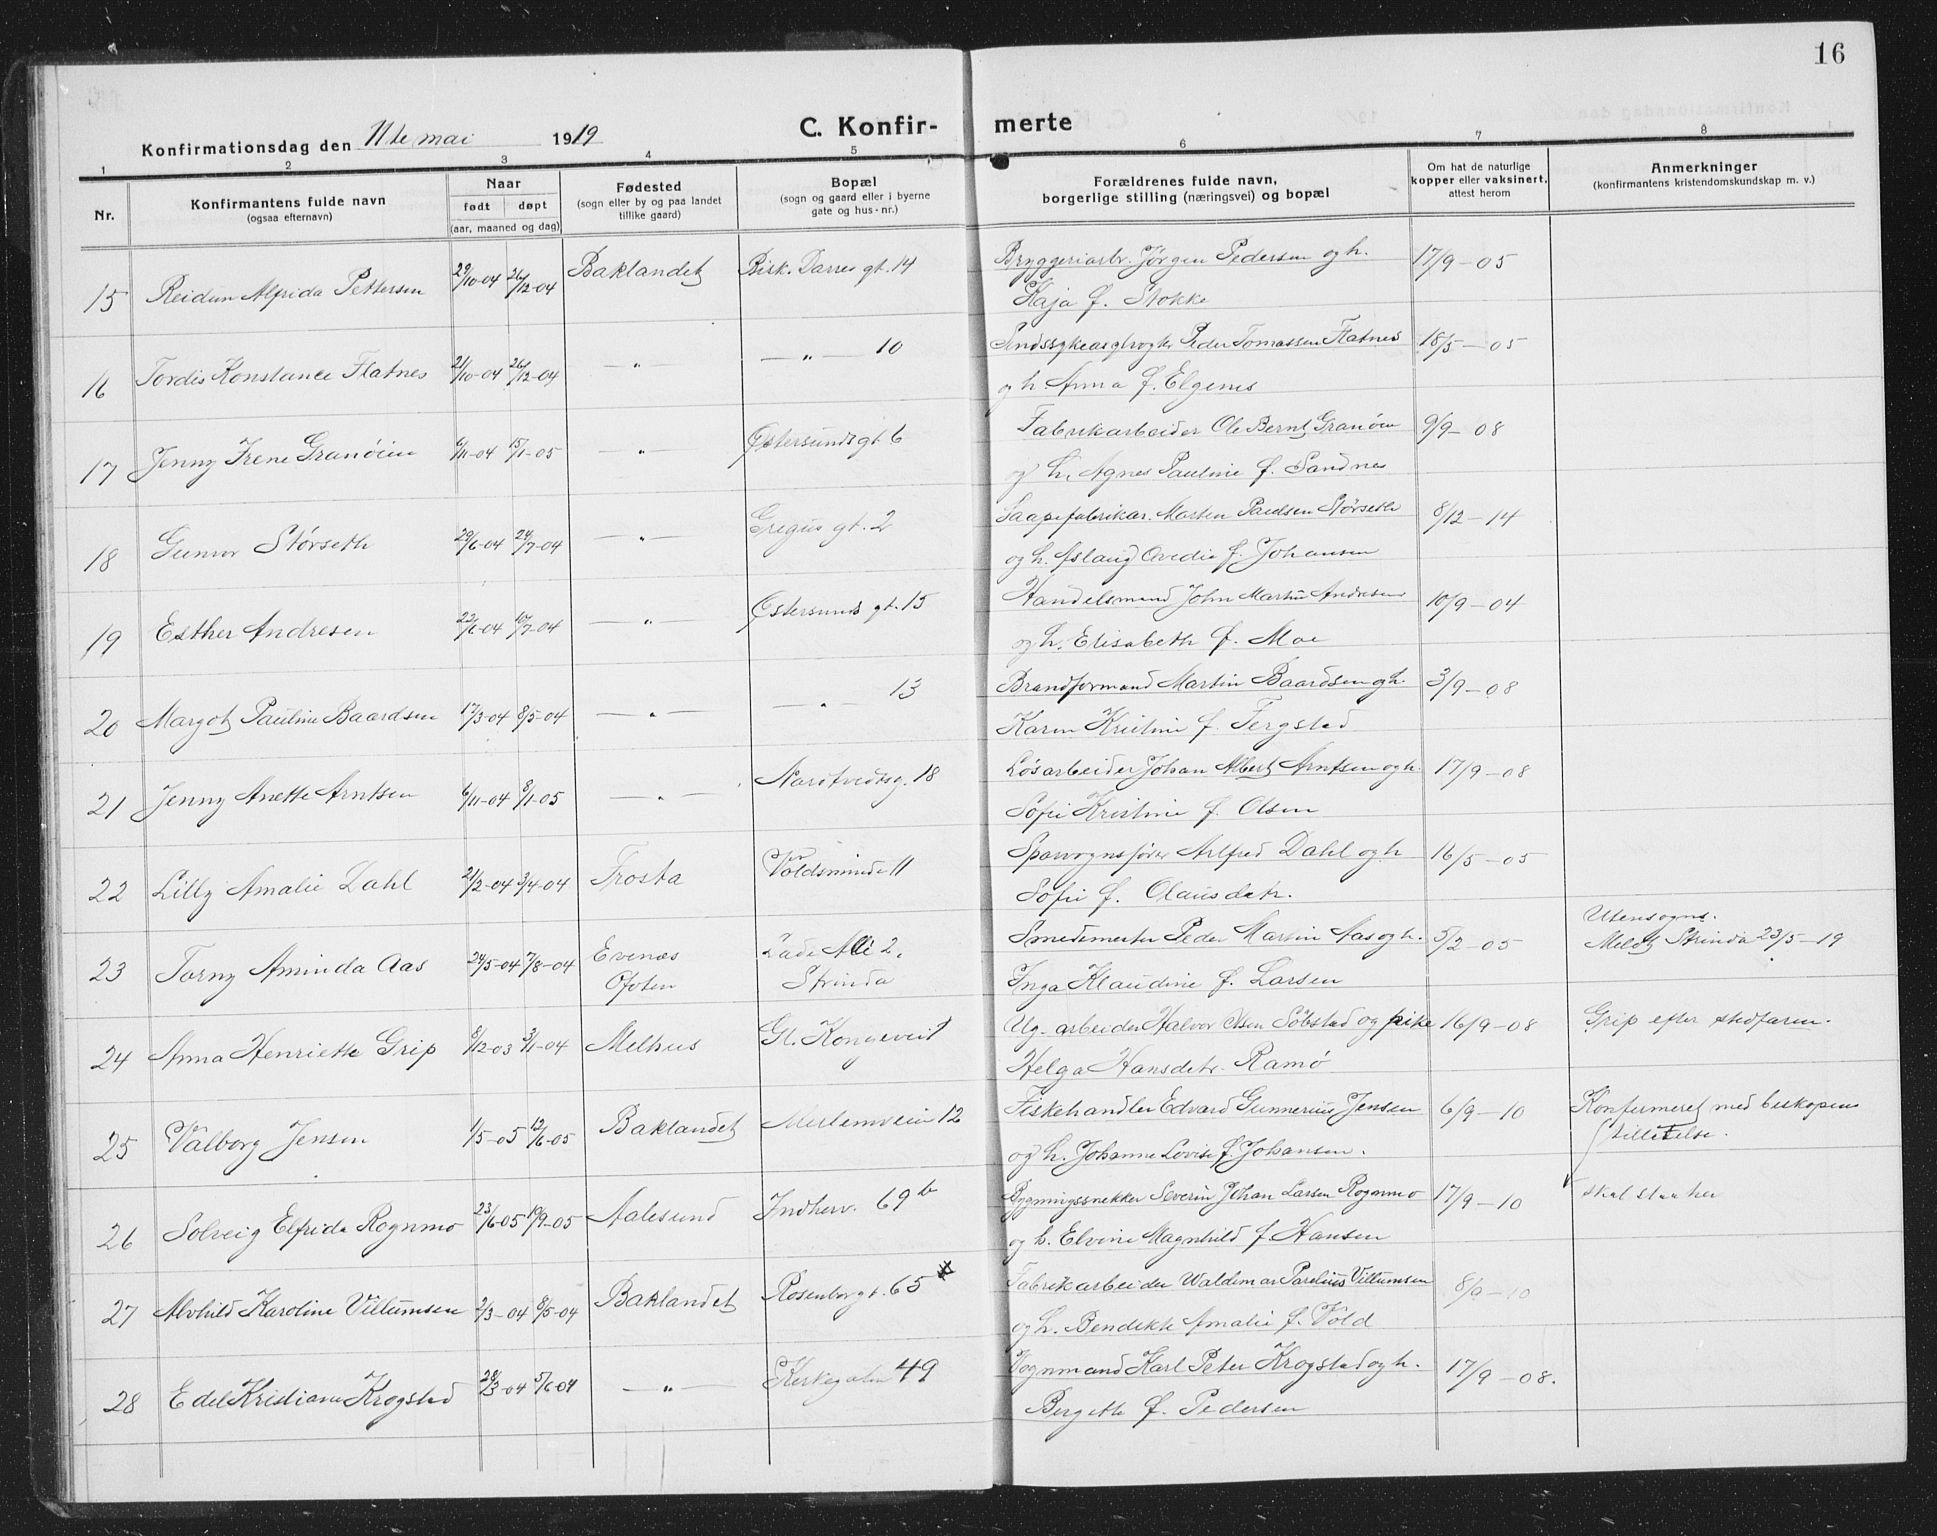 16
Konfirmationsdag den 11te mai 1919
C. Konfir- merte
1 2 3 4 5 6 7 8
Nr. Konfirmantens fulde navn (ogsaa efternavn) Naar født døpt (aar, maaned og dag) Fødested (sogn eller by og paa landet tillike gaard) Bopæl (sogn og gaard eller i byerne gate og hus-nr.) Forældrenes fulde navn, borgerlige stilling (næringsvei) og bopæl Om hat de naturlige kopper eller vaksinert, attest herom Anmerkninger (konfirmantens kristendomskundskap m. v.)
15 Reidun Alfrida Pettersen 29/10-04 26/12-04 Baklandet Bisk. Darres gt. 14 Bryggeriarb. Jørgen Pedersen og h. 17/9-05
Kaja f. Stokke
16 Tordis Konstance Flatnes 21/10-04 26/12-04 —"— —"— 10 Peder Tomassen Flatnes 18/5-05
og h. Anna f. Elgenes
17 Jenny Irene Granöien 6/11-04 15/1-05 —"— Østersunds gt. 6 Fabrikarbeider Ole Bernt Granöien 9/9-08
og h. Agnes Pauline f. Sandnes
18 Gunvor Störseth 29/6-04 24/7-04 —"— Gregus gt. 2 Saapefabrikar. Morten Paulsen Störseth 8/12-14
og h. Aslaug Ovedie f. Johansen
19 Esther Andresen 22/6-04 10/7-04 —"— Østersunds gt. 15 Handelsmand John Martin Andresen 10/9-04
og h. Elisabeth f. Moe
20 Margot Pauline Baardsen 17/3-04 8/5-04 —"— —"— 13 Brandformand Martin Baardsen og h. 3/9-08
Karen Kristine f. Fergstad
21 Jenny Anette Arntsen 6/11-04 8/1-05 —"— Nardtvedtsg. 18 Løsarbeider Johan Albert Arntsen og h. 17/9-08
Sofie Kristine f. Olsen
22 Lilly Amalie Dahl 21/2-04 3/4-04 Frosta Voldsminde 11 Sporvognsfører Alfred Dahl og h 16/5-05
Sofie f. Olausdatr.
23 Torny Aminda Aas 24/5-04 7/8-04 Evenæs Ofoten Lade Allé 2. Strinda Smedemester Peder Martin Aas og h. 5/2-05 Utensogns. Meldt Strinda 23/5-19
Inga Klaudine f. Larsen
24 Anna Henriette Grip 8/12-03 3/1-04 Melhus Gl. Kongeveit Ug. arbeider Halvor Olsen Söbstad og pike 16/9-08 Grip efter stedfaren.
Helga Hansdatr. Ramö
25 Valborg Jensen 1/5-05 12/6-05 Baklandet Mellemveien 12 Fiskehandler Edvard Gunnerius Jensen 6/9-10 Konfirmeret med biskopens tillatelse.
og h. Johanne Lovise f. Johansen.
26 Solveig Elfrida Rognmo 23/6-05 10/9-05 Aalesund Indherv. 69 b Bygningssnekker Severin Johan Larsen Rognmo 17/9-10 skal staa her
og h. Elvine Magnhild f. Hansen
27 Alvhild Karoline Villumsen 2/3-04 8/5-04 Baklandet Rosenborgt. 65 Fabrikarbeider Waldemar Parelius Villumsen 8/9-10
og h. Bendikte Amalie f. Vold
28 Edel Kristiane Krogstad 28/3-04 5/6-04 —"— Kirkegaten 49 Vognmand Karl Peter Krogstad og h. 17/9-08.
Bergitte f. Pedersen